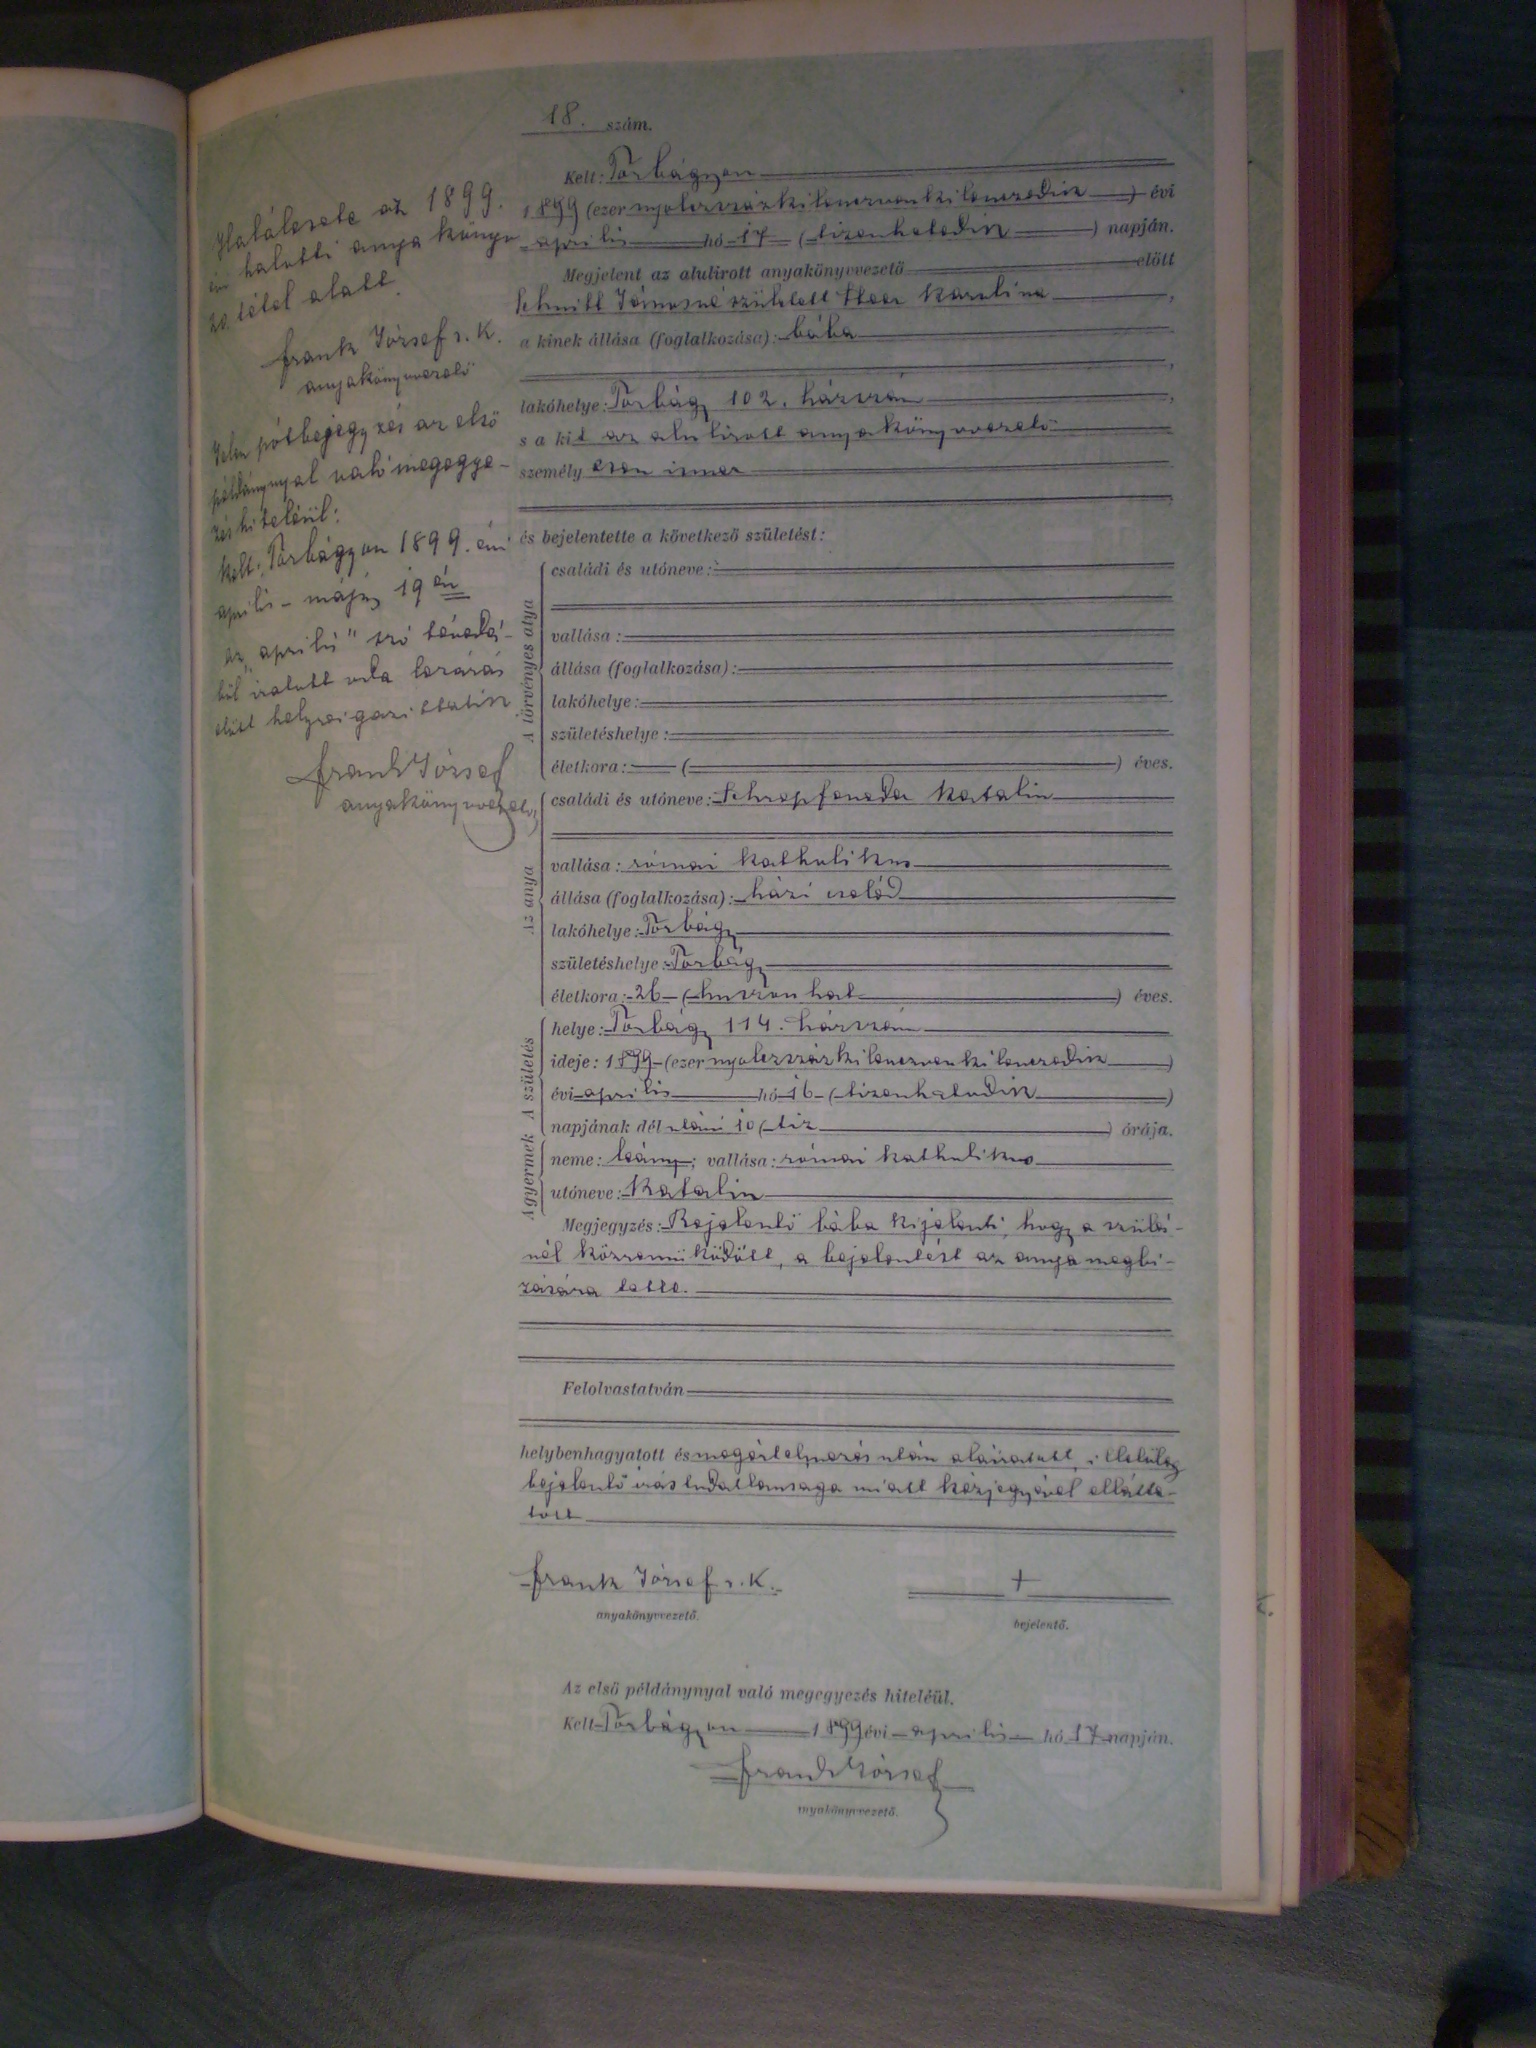 18. szám.
Kelt: Torbágyon
1899 (ezer nyolczszázkilenczvenkilenczedik) évi
április hó 17 (tizenhetedik) napján.
Megjelent az alulirott anyakönyvvezető előtt
Schmitt Jánosné született Karolina,
a kinek állása (foglalkozása): bába
,
lakóhelye: Torbágy 102. házszám,
s a kit az alulirott anyakönyvvezető
személyesen ismer
,
és bejelentette a következő születést:
A törvényes atya
családi és utóneve:
vallása:
állása (foglalkozása):
lakóhelye:
születéshelye:
életkora: ( ) éves.
Az anya
családi és utóneve: Katalin
vallása: római katholikus
állása (foglalkozása): házi cseléd
lakóhelye: Torbágy
születéshelye: Torbágy
életkora: 26 (huszonhat) éves.
A születés
helye: Torbágy 114. házszám
ideje: 1899 (ezer nyolczszázkilenczvenkilenczedik)
évi április hó 16 (tizenhatodik)
napjának dél utáni 10 (tiz) órája.
A gyermek
neme: leány; vallása: római katholikus
utóneve: Katalin
Megjegyzés: Bejelentő bába kijelenti, hogy a szülés-
nél közremüködött, a bejelentést az anya megbi-
zására tette.
Felolvastatván
helybenhagyatott és megértelmezés után aláiratott, illetőleg
bejelentő irástudatlansága miatt kézjegyével elláttat-
tott
Frank József s. k.
anyakönyvvezető.
+
bejelentő.
Az első példánynyal való megegyezés hiteléül.
Kelt Torbágyon 1899 évi április hó 17 napján.
Frank József
anyakönyvvezető.
Halálesete az 1899.
évi halotti anyakönyv
20. tétel alatt.
Frank József s. k.
anyakönyvvezető
Jelen pótbejegyzés az első
példánynyal való megegye-
zés hiteléül:
Kelt: Torbágyon 1899. évi
április - május 19 én
az „április" szó tévedés-
ből iratott oda lezárás
előtt helyreigazittatik
Frank József
anyakönyvvezető